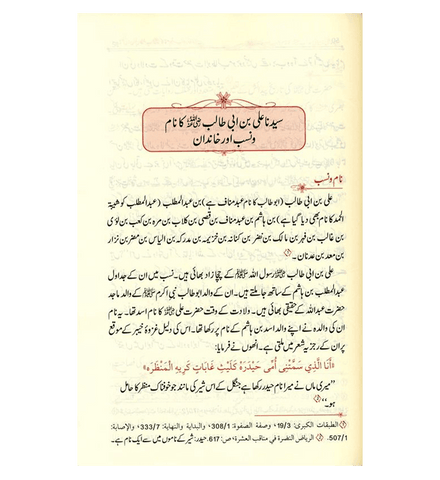 سیدنا علی بن ابی طالب رضی اللہ عنہ کا نام
ونسب اور خاندان
نام ونسب
علی بن ابی طالب (ابو طالب کا نام عبد مناف ہے) بن عبدالمطلب (عبدالمطلب کو شیبۃ
الحمد کا نام بھی دیا گیا ہے) بن ہاشم بن عبد مناف بن قصی بن کلاب بن مرہ بن کعب بن لؤی
بن غالب بن فہر بن مالک بن نضر بن کنانہ بن خزیمہ بن مدرکہ بن الیاس بن مضر بن نزار
بن معد بن عدنان۔
علی بن ابی طالب رضی اللہ عنہ رسول اللہ ﷺ کے چچا زاد بھائی ہیں۔ نسب میں ان کے جد اول
عبدالمطلب بن ہاشم کے ساتھ جا ملتے ہیں۔ ان کے والد ابو طالب نبی اکرم ﷺ کے والد ماجد
حضرت عبد اللہ کے حقیقی بھائی ہیں۔ ولادت کے وقت حضرت علی رضی اللہ عنہ کا نام اسد تھا۔ یہ نام
ان کی والدہ نے اپنے والد اسد بن ہاشم کے نام پر رکھا تھا۔ اس کی دلیل غزوۂ خیبر کے موقع
پر ان کے رجزیہ شعر میں ملتی ہے۔ انھوں نے فرمایا:
«أَنَا الَّذِي سَمَّتْنِي أُمِّي حَيْدَرَهْ كَلَيْثِ غَابَاتٍ كَرِيهِ الْمَنْظَرَهْ»
”میری ماں نے میرا نام حیدر رکھا ہے جنگل کے اس شیر کی مانند جو خوفناک منظر کا حامل
ہو۔“
الطبقات الكبرى: 19/3، وصفة الصفوة: 308/1، والبداية والنهاية: 333/7، والإصابة:
507/1. الرياض النضرة في مناقب العشرة، ص: 617. حیدر: شیر کے ناموں میں سے ایک نام ہے۔